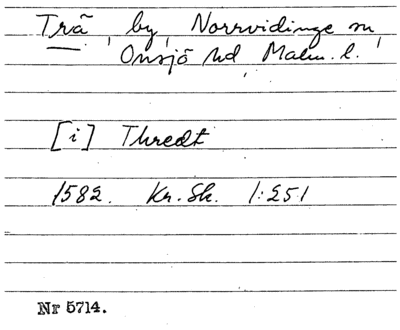 Trä, by, Norrvidinge sn,
Onsjö hd, Malm. l.
[i] Thredt
1582. Kr. Sk. 1:251
Nr 5714.